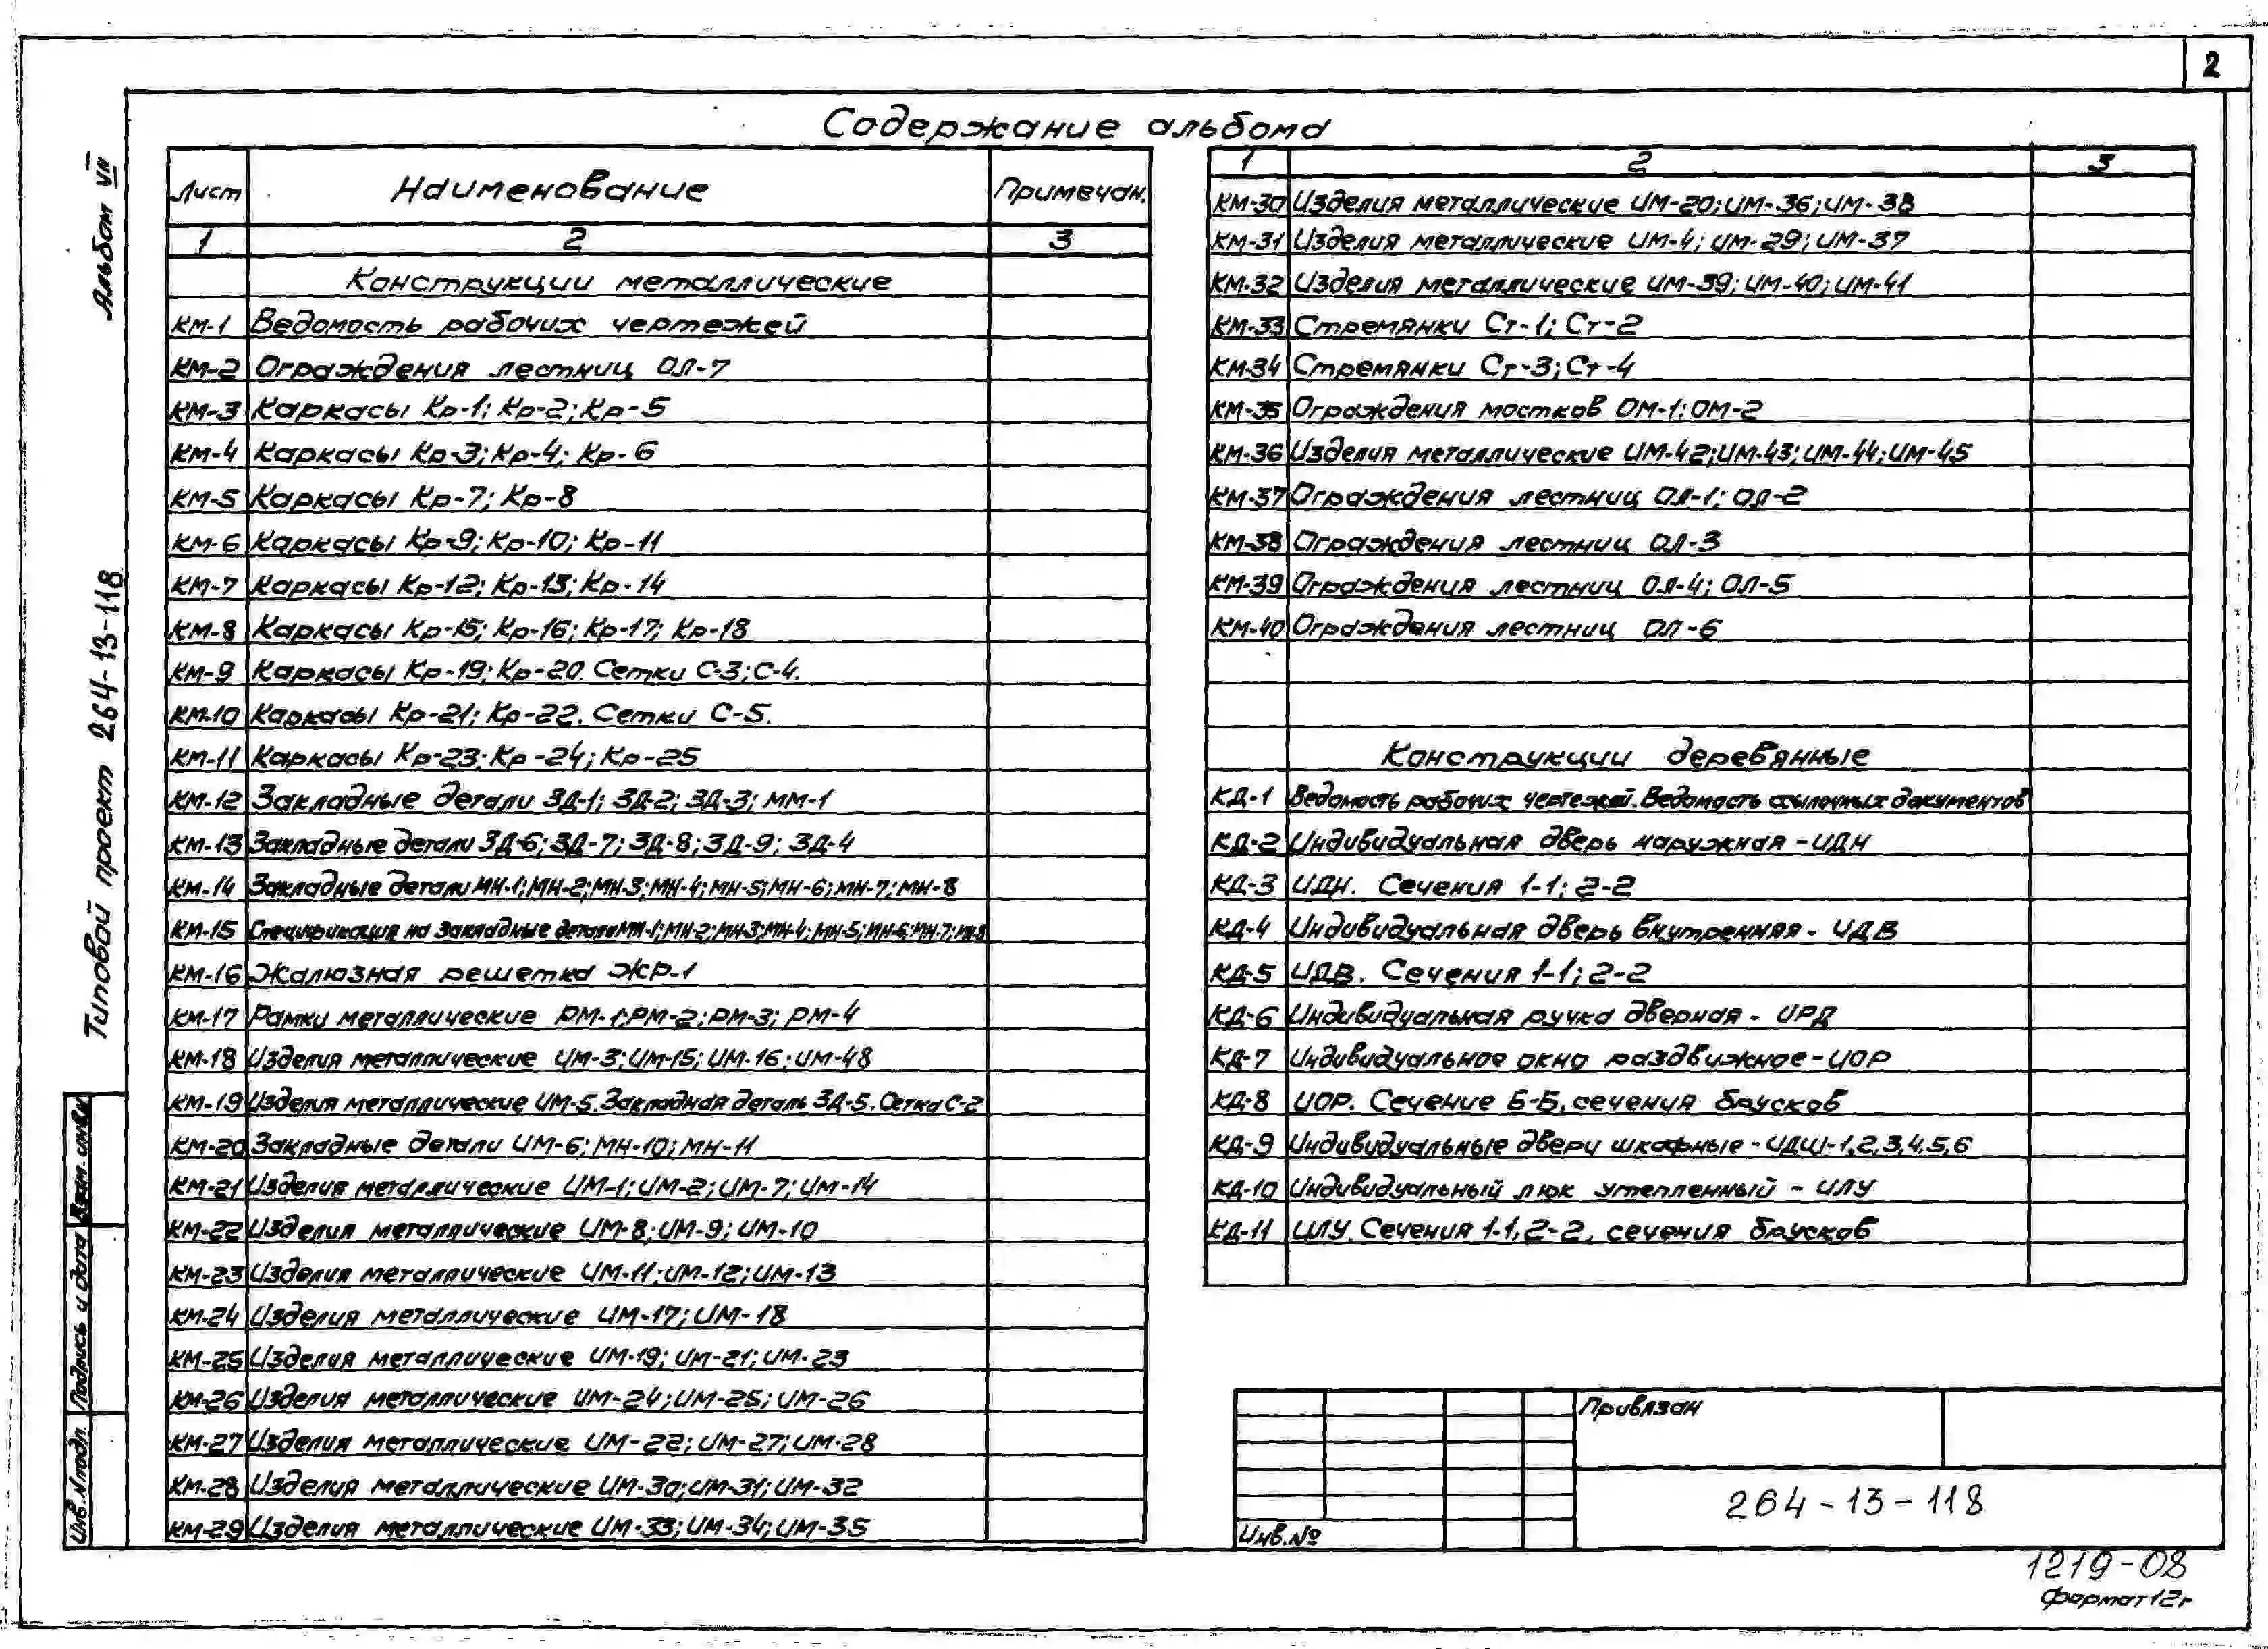 2
Содержание альбома
Альбом VII
Типовой проект 264-13-118
Взам. инв.
Подпись и дата
Инв. N подл.
Лист Наименование Примечан.
1 2 3
Конструкции металлические
КМ-1 Ведомость рабочих чертежей
КМ-2 Ограждения лестниц ОЛ-7
КМ-3 Каркасы Кр-1; Кр-2; Кр-5
КМ-4 Каркасы Кр-3; Кр-4; Кр-6
КМ-5 Каркасы Кр-7; Кр-8
КМ-6 Каркасы Кр-9; Кр-10; Кр-11
КМ-7 Каркасы Кр-12; Кр-13; Кр-14
КМ-8 Каркасы Кр-15; Кр-16; Кр-17; Кр-18
КМ-9 Каркасы Кр-19; Кр-20. Сетки С-3; С-4.
КМ-10 Каркасы Кр-21; Кр-22. Сетки С-5.
КМ-11 Каркасы Кр-23; Кр-24; Кр-25
КМ-12 Закладные детали ЗД-1; ЗД-2; ЗД-3; ММ-1
КМ-13 Закладные детали ЗД-6; ЗД-7; ЗД-8; ЗД-9; ЗД-4
КМ-14 Закладные детали МН-1; МН-2; МН-3; МН-4; МН-5; МН-6; МН-7; МН-8
КМ-15 Спецификация на закладные детали МН-1; МН-2; МН-3; МН-4; МН-5; МН-6; МН-7; МН-8
КМ-16 Жалюзная решетка ЖР-1
КМ-17 Рамки металлические РМ-1; РМ-2; РМ-3; РМ-4
КМ-18 Изделия металлические ИМ-3; ИМ-15; ИМ-16; ИМ-48
КМ-19 Изделия металлические ИМ-5. Закладная деталь ЗД-5. Сетка С-2
КМ-20 Закладные детали ИМ-6; МН-10; МН-11
КМ-21 Изделия металлические ИМ-1; ИМ-2; ИМ-7; ИМ-14
КМ-22 Изделия металлические ИМ-8; ИМ-9; ИМ-10
КМ-23 Изделия металлические ИМ-11; ИМ-12; ИМ-13
КМ-24 Изделия металлические ИМ-17; ИМ-18
КМ-25 Изделия металлические ИМ-19; ИМ-21; ИМ-23
КМ-26 Изделия металлические ИМ-24; ИМ-25; ИМ-26
КМ-27 Изделия металлические ИМ-22; ИМ-27; ИМ-28
КМ-28 Изделия металлические ИМ-30; ИМ-31; ИМ-32
КМ-29 Изделия металлические ИМ-33; ИМ-34; ИМ-35
1 2 3
КМ-30 Изделия металлические ИМ-20; ИМ-36; ИМ-38
КМ-31 Изделия металлические ИМ-4; ИМ-29; ИМ-37
КМ-32 Изделия металлические ИМ-39; ИМ-40; ИМ-41
КМ-33 Стремянки Ст-1; Ст-2
КМ-34 Стремянки Ст-3; Ст-4
КМ-35 Ограждения мостков ОМ-1; ОМ-2
КМ-36 Изделия металлические ИМ-42; ИМ-43; ИМ-44; ИМ-45
КМ-37 Ограждения лестниц ОЛ-1; ОЛ-2
КМ-38 Ограждения лестниц ОЛ-3
КМ-39 Ограждения лестниц ОЛ-4; ОЛ-5
КМ-40 Ограждения лестниц ОЛ-6
Конструкции деревянные
КД-1 Ведомость рабочих чертежей. Ведомость ссылочных документов
КД-2 Индивидуальная дверь наружная - ИДН
КД-3 ИДН. Сечения 1-1; 2-2
КД-4 Индивидуальная дверь внутренняя - ИДВ
КД-5 ИДВ. Сечения 1-1; 2-2
КД-6 Индивидуальная ручка дверная - ИРД
КД-7 Индивидуальное окно раздвижное - ИОР
КД-8 ИОР. Сечение Б-Б, сечения брусков
КД-9 Индивидуальные двери шкафные - ИДШ-1,2,3,4,5,6
КД-10 Индивидуальный люк утепленный - ИЛУ
КД-11 ИЛУ. Сечения 1-1, 2-2, сечения брусков
Привязан
264-13-118
Инв. №
1219-08
Формат 12г